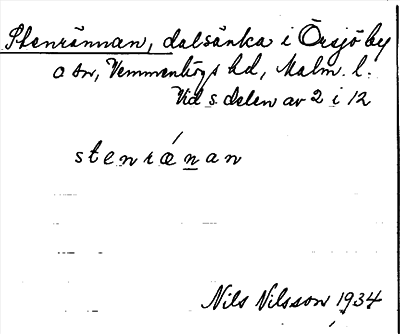 Stenrännan, dalsänka i Örsjö by
o sn, Vemmenhögs hd, Malm. l.
Vid s. delen av 2 i 12
stenrǽnan
Nils Nilsson 1934